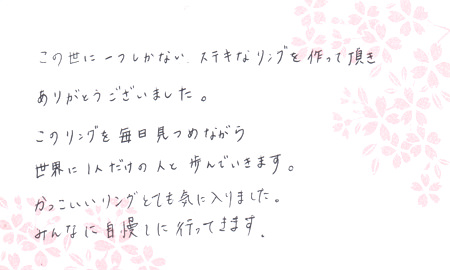 この世に一つしかない、ステキなリングを作って頂き
ありがとうございました。
このリングを毎日見つめながら
世界に1人だけの人と歩んでいきます。
かっこいいリングとても気に入りました。
みんなに自慢しに行ってきます。